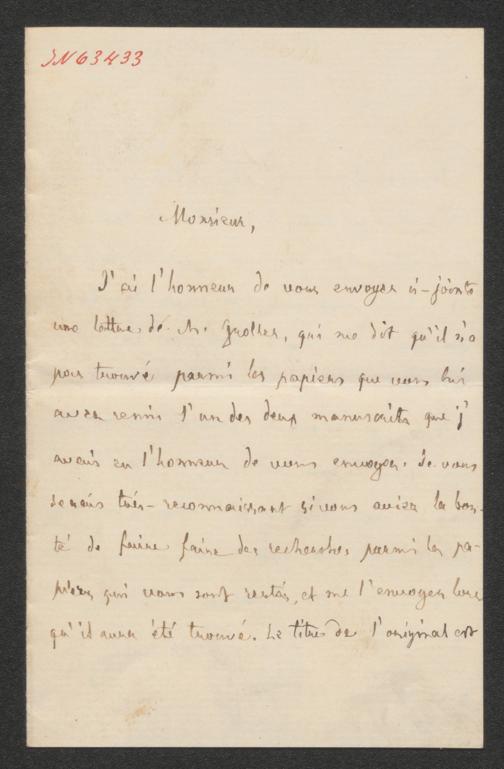 IN 63433
Monsieur,
J'ai l'honneur de vous envoyer ci-jointe
une lettre de M. Grolles, qui me dit qu'il n'a
pas trouvé parmi les papiers que vous lui
avez remis l'un des deux manuscrits que j'
avais eu l'honneur de vous envoyer. Je vous
serais très-reconnaissant si vous aviez la bon-
té de faire faire des recherches parmi les pa-
piers qui vous sont restés, et me l'envoyer lors
qu'il aura été trouvé. Le titre de l'original est